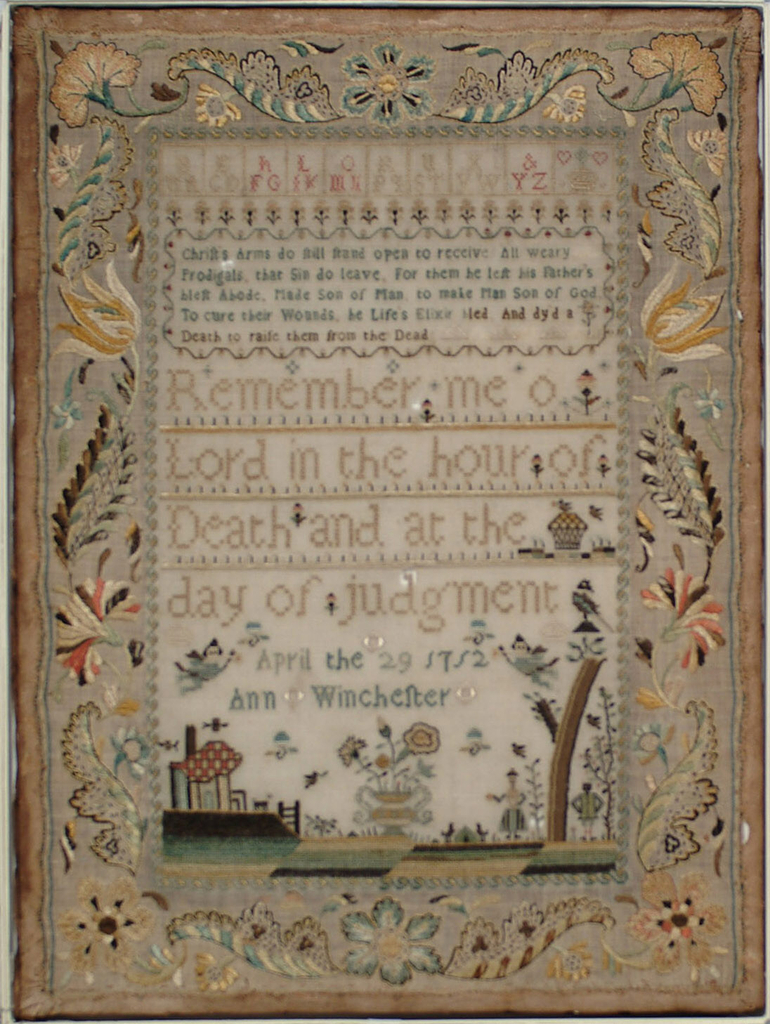 & 
FG IK YZ
Chriſt's Arms do ſtill ſtand open to receive All weary
Prodigals, that Sin do leave, For them he left his Father's
bleſt Abode, Made Son of Man, to make Man Son of God
To cure their Wounds, he Life's Elixir bled And dy'd a
Death to raiſe them from the Dead
Remember me o
Lord in the hour of
Death and at the
day of judgment
April the 29 1752
Ann Wincheſter